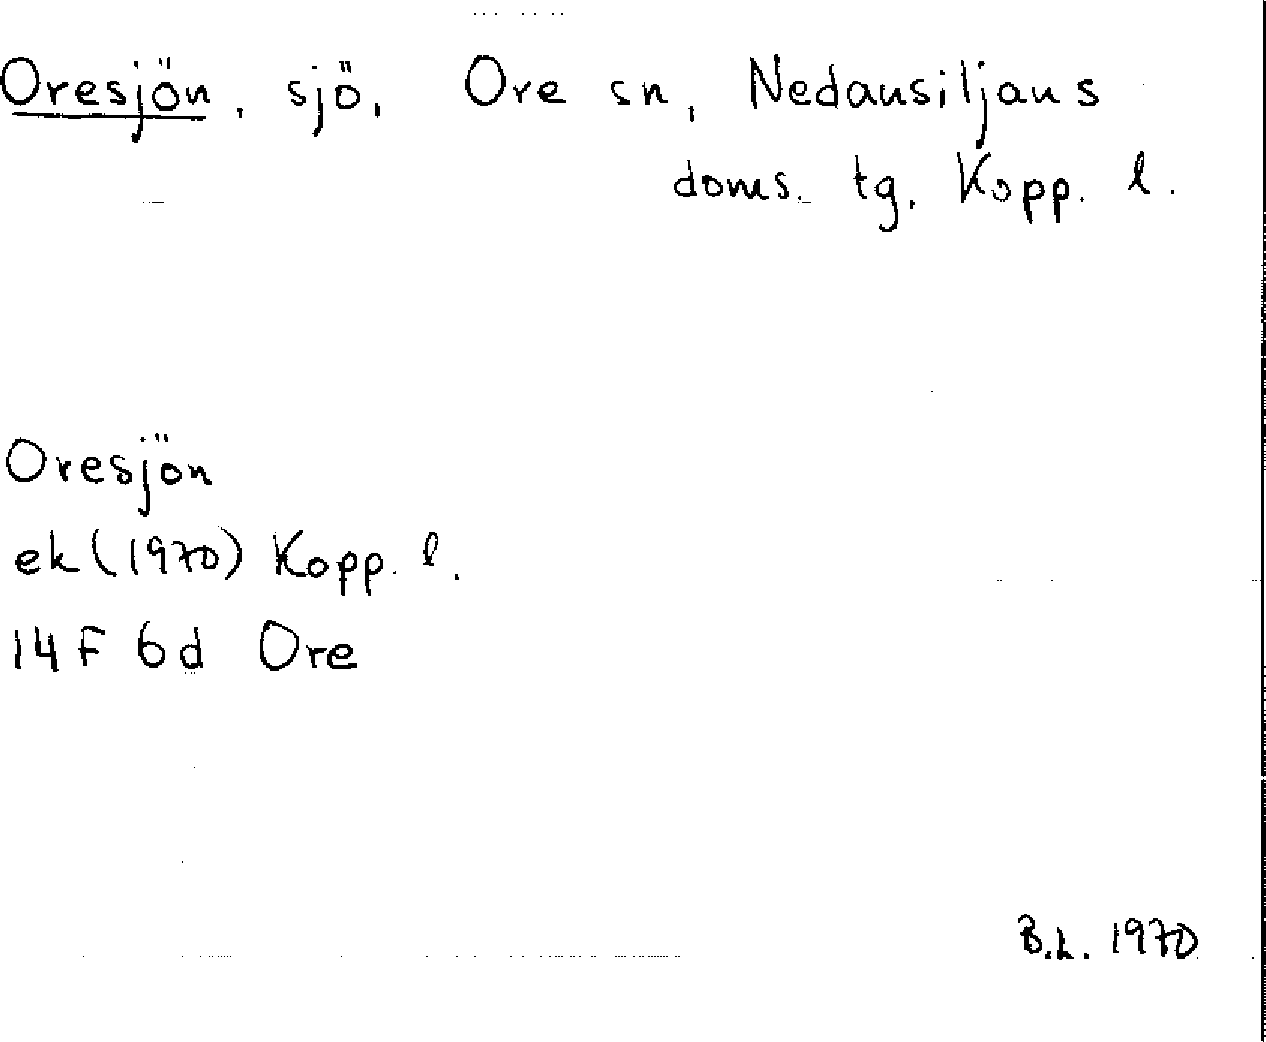 Oresjön, sjö, Ore sn, Nedansiljans
doms. tg, Kopp. l.
Oresjön
ek (1970) Kopp. l.
14 F 6d Ore
B.L. 1970